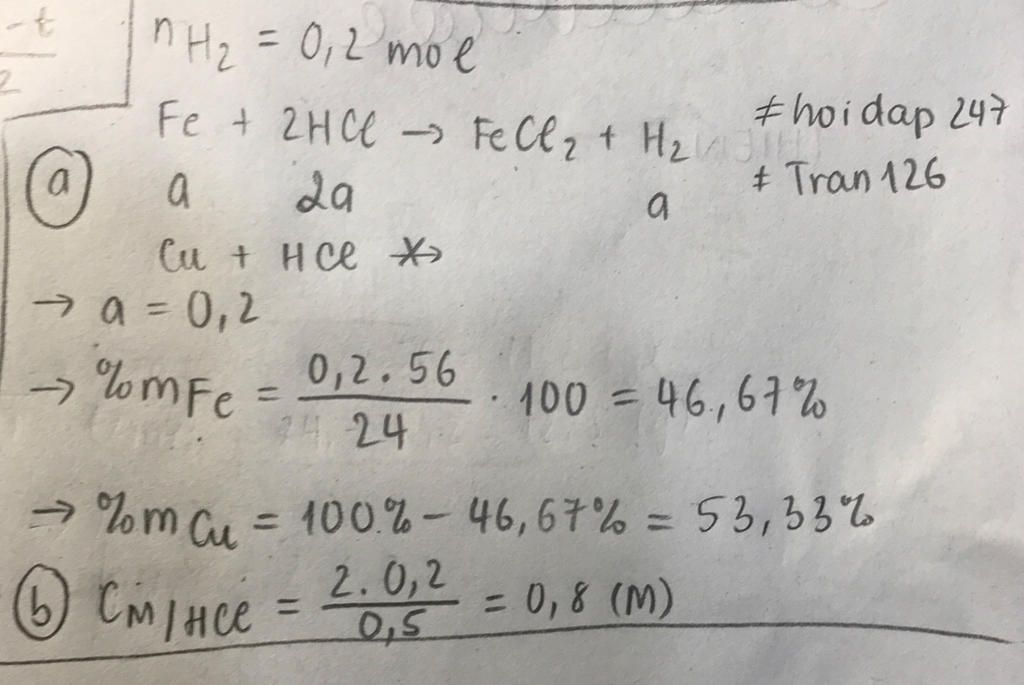 -t
2
nH₂ = 0,2 mol
Fe + 2HCl → FeCl₂ + H₂
≠hoidap 247
ⓐ a 2a a
≠ Tran 126
Cu + HCl ↛
→ a = 0,2
→ %mFe = 0,2.56 / 24 . 100 = 46,67%
→ %mCu = 100% - 46,67% = 53,33%
ⓑ CM/HCl = 2.0,2 / 0,5 = 0,8 (M)